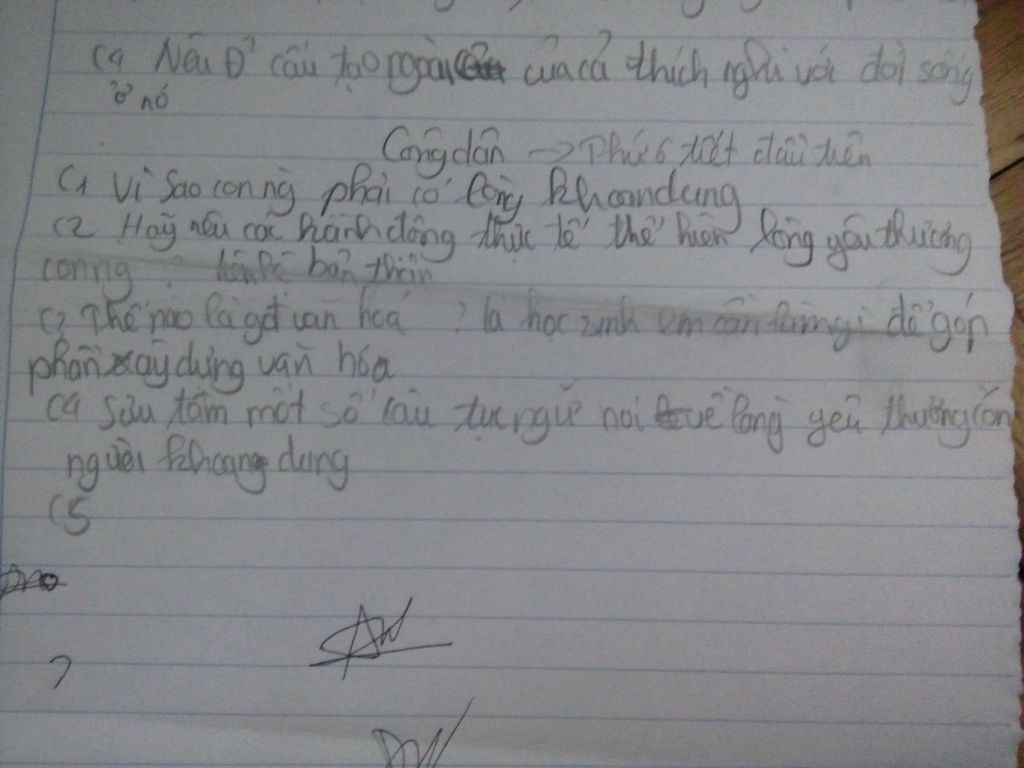 C4 Nêu Đ² cấu tạo ngoài của cá thích nghi với đời sống
ở nó
Công dân → Thứ 6 tiết đầu tiên
C1 Vì sao con ng phải có lòng khoan dung
C2 Hãy nêu các hành động thực tế thể hiện lòng yêu thương
con ng ? liên hệ bản thân
C3 Thế nào là gđ văn hoá ? là học sinh em cần làm gì để góp
phần xây dựng văn hóa
C4 Sưu tầm một số câu tục ngữ nói về lòng yêu thương con
người khoang dung
C5
?